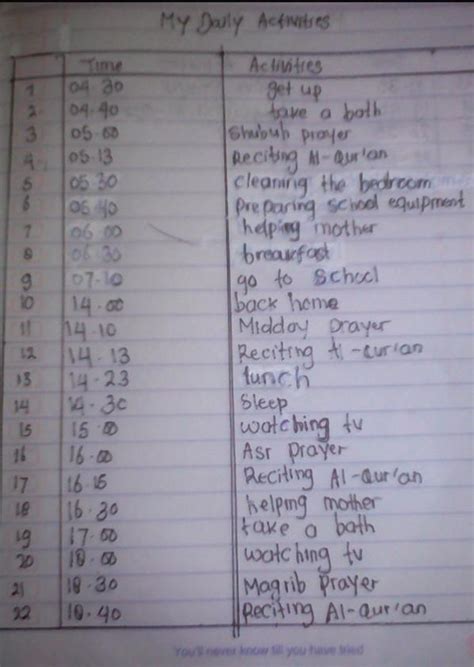 My Daily Activities
Time Activities
1 04.30 get up
2 04.40 take a bath
3 05.00 Shubuh prayer
4 05.13 Reciting Al-Qur'an
5 05.30 cleaning the bedroom
6 05.40 Preparing school equipment
7 06.00 helping mother
8 06.30 breakfast
9 07-10 go to School
10 14.00 back home
11 14.10 Midday prayer
12 14-13 Reciting Al-Qur'an
13 14-23 lunch
14 14-30 Sleep
15 15.00 watching tv
16 16.00 Asr prayer
17 16.15 Reciting Al-Qur'an
18 16.30 helping mother
19 17.00 take a bath
20 18.00 watching tv
21 18.30 Magrib Prayer
22 18.40 Reciting Al-Qur'an
You'll never know till you have tried